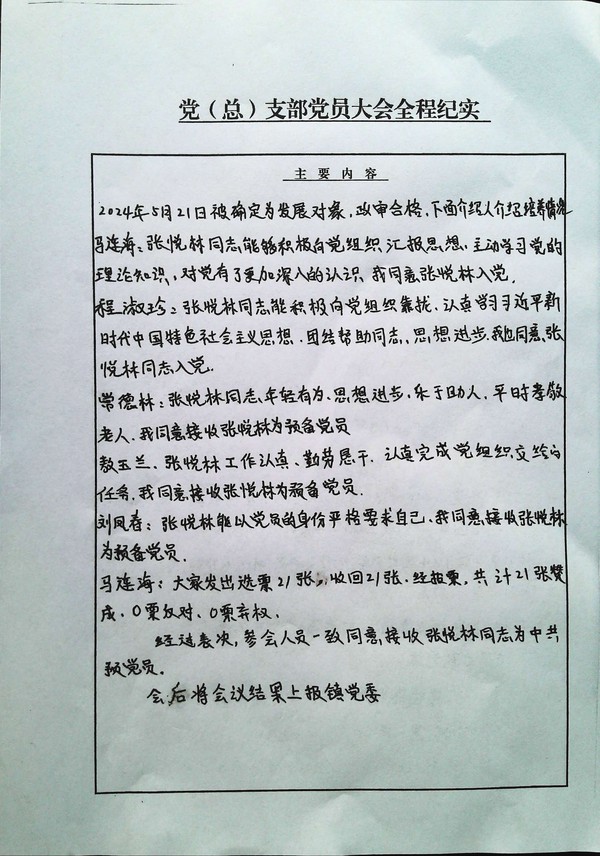 党（总）支部党员大会全程纪实
主要内容
2024年5月21日被确定为发展对象，政审合格，下面介绍人介绍培养情况
马连海：张悦林同志能够积极向党组织汇报思想，主动学习党的
理论知识，对党有了更加深入的认识，我同意张悦林入党。
程淑珍：张悦林同志能积极向党组织靠拢，认真学习习近平新
时代中国特色社会主义思想，团结帮助同志，思想进步，我也同意张
悦林同志入党。
常德林：张悦林同志年轻有为、思想进步，乐于助人，平时孝敬
老人，我同意接收张悦林为预备党员
敖玉兰、张悦林工作认真、勤劳恳干，认真完成党组织交给的
任务，我同意接收张悦林为预备党员。
刘凤春：张悦林能以党员的身份严格要求自己，我同意接收张悦林
为预备党员。
马连海：大家发出选票21张，收回21张，经报票，共计21张赞
成，0票反对、0票弃权。
经过表决，参会人员一致同意接收张悦林同志为中共
预党员。
会后将会议结果上报镇党委